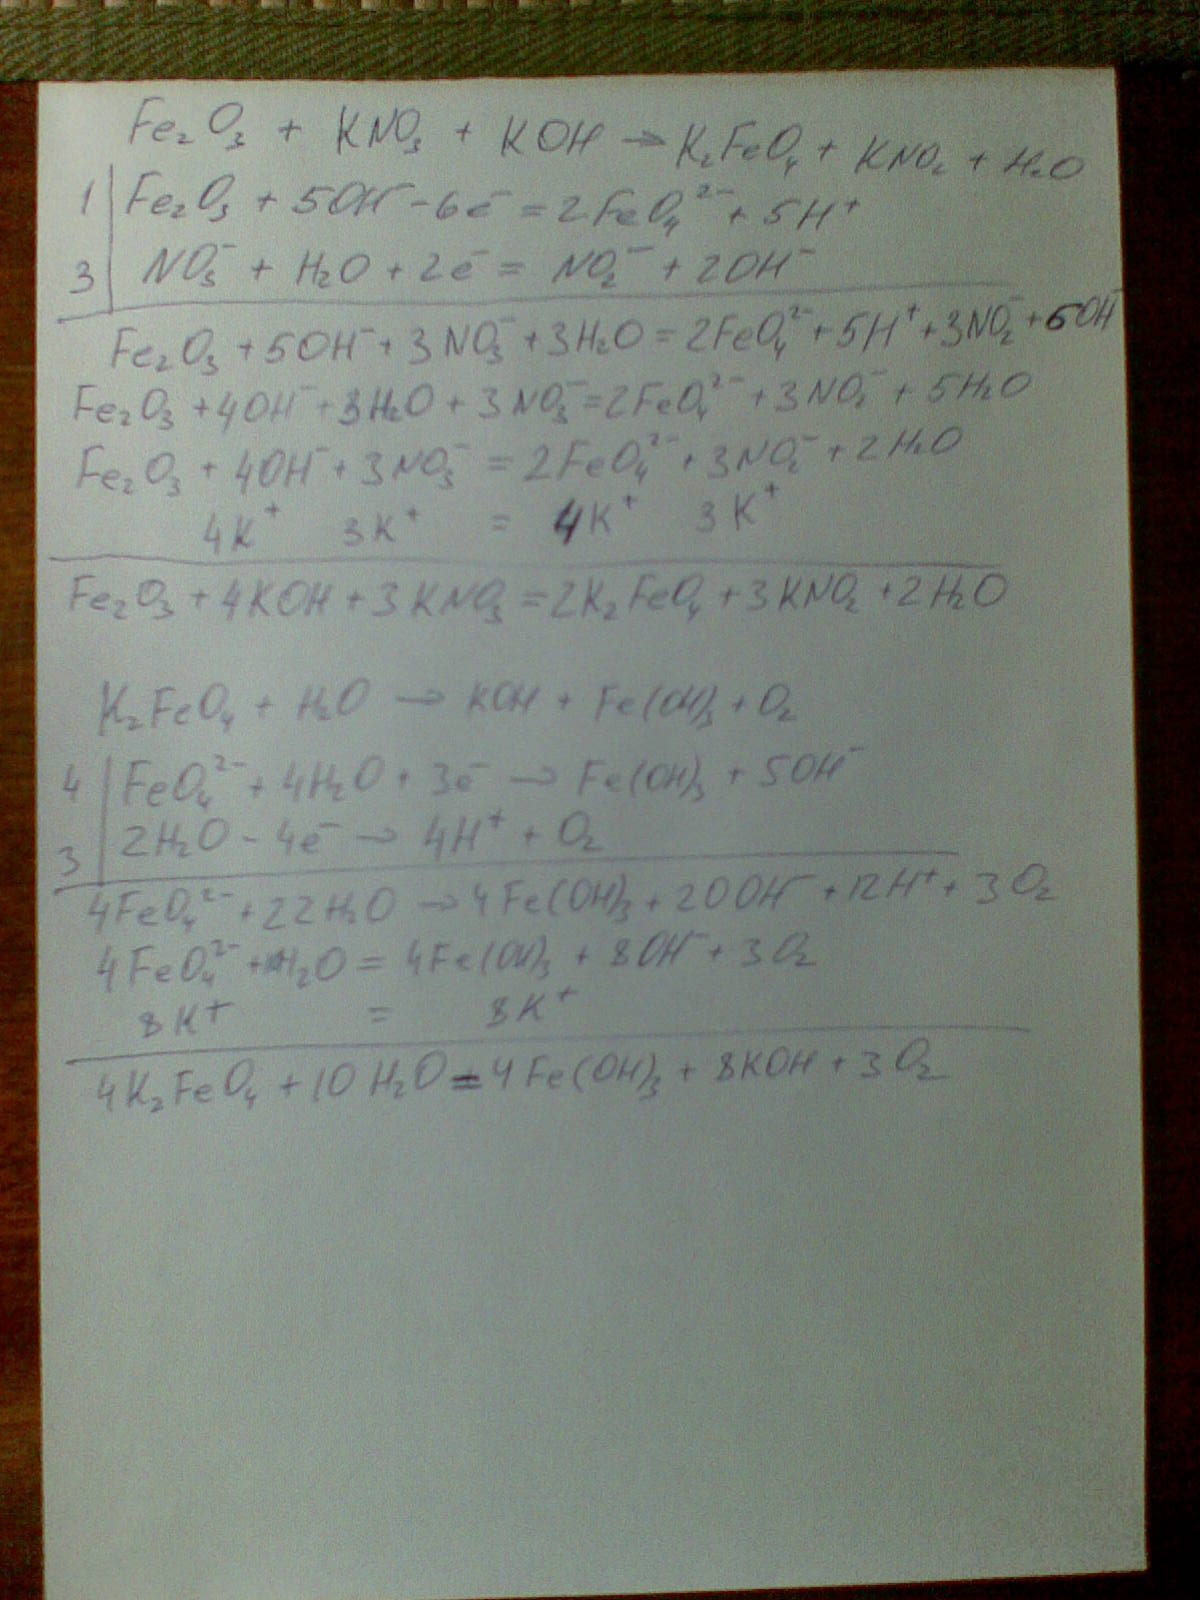 Fe₂O₃ + KNO₃ + KOH → K₂FeO₄ + KNO₂ + H₂O
1 | Fe₂O₃ + 5OH⁻ - 6e⁻ = 2FeO₄²⁻ + 5H⁺
3 | NO₃⁻ + H₂O + 2e⁻ = NO₂⁻ + 2OH⁻
Fe₂O₃ + 5OH⁻ + 3NO₃⁻ + 3H₂O = 2FeO₄²⁻ + 5H⁺ + 3NO₂⁻ + 6OH⁻
Fe₂O₃ + 4OH⁻ + 3H₂O + 3NO₃⁻ = 2FeO₄²⁻ + 3NO₂⁻ + 5H₂O
Fe₂O₃ + 4OH⁻ + 3NO₃⁻ = 2FeO₄²⁻ + 3NO₂⁻ + 2H₂O
4K⁺ 3K⁺ = 4K⁺ 3K⁺
Fe₂O₃ + 4KOH + 3KNO₃ = 2K₂FeO₄ + 3KNO₂ + 2H₂O
K₂FeO₄ + H₂O → KOH + Fe(OH)₃ + O₂
4 | FeO₄²⁻ + 4H₂O + 3e⁻ → Fe(OH)₃ + 5OH⁻
3 | 2H₂O - 4e⁻ → 4H⁺ + O₂
4FeO₄²⁻ + 22H₂O → 4Fe(OH)₃ + 20OH⁻ + 12H⁺ + 3O₂
4FeO₄²⁻ + H₂O = 4Fe(OH)₃ + 8OH⁻ + 3O₂
8K⁺ = 8K⁺
4K₂FeO₄ + 10H₂O = 4Fe(OH)₃ + 8KOH + 3O₂